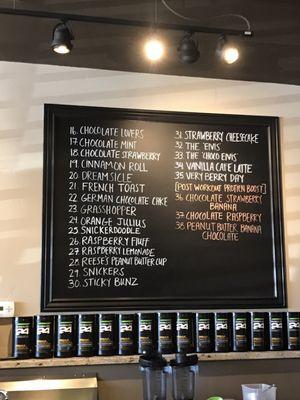 16. CHOCOLATE LOVERS
17 CHOCOLATE MINT
18 CHOCOLATE STRAWBERRY
19. CINNAMON ROLL
20 DREAMSICLE
21. FRENCH TOAST
22 GERMAN CHOCOLATE CAKE
23. GRASSHOPPER
24 ORANGE JULIUS
25 SNICKERDOODLE
26 RASPBERRY FLUFF
27 RASPBERRY LEMONADE
28 REESE'S PEANUT BUTTER CUP
29. SNICKERS
30. STICKY BUNZ
31 STRAWBERRY CHEESECAKE
32 THE 'ENIS
33 THE 'CHOCO ENIS
34 VANILLA CAFE LATTE
35 VERY BERRY DRY
[POST WORKOUT PROTEIN BOOST]
36 CHOCOLATE STRAWBERRY
BANANA
37 CHOCOLATE RASPBERRY
38 PEANUT BUTTER BANANA
CHOCOLATE